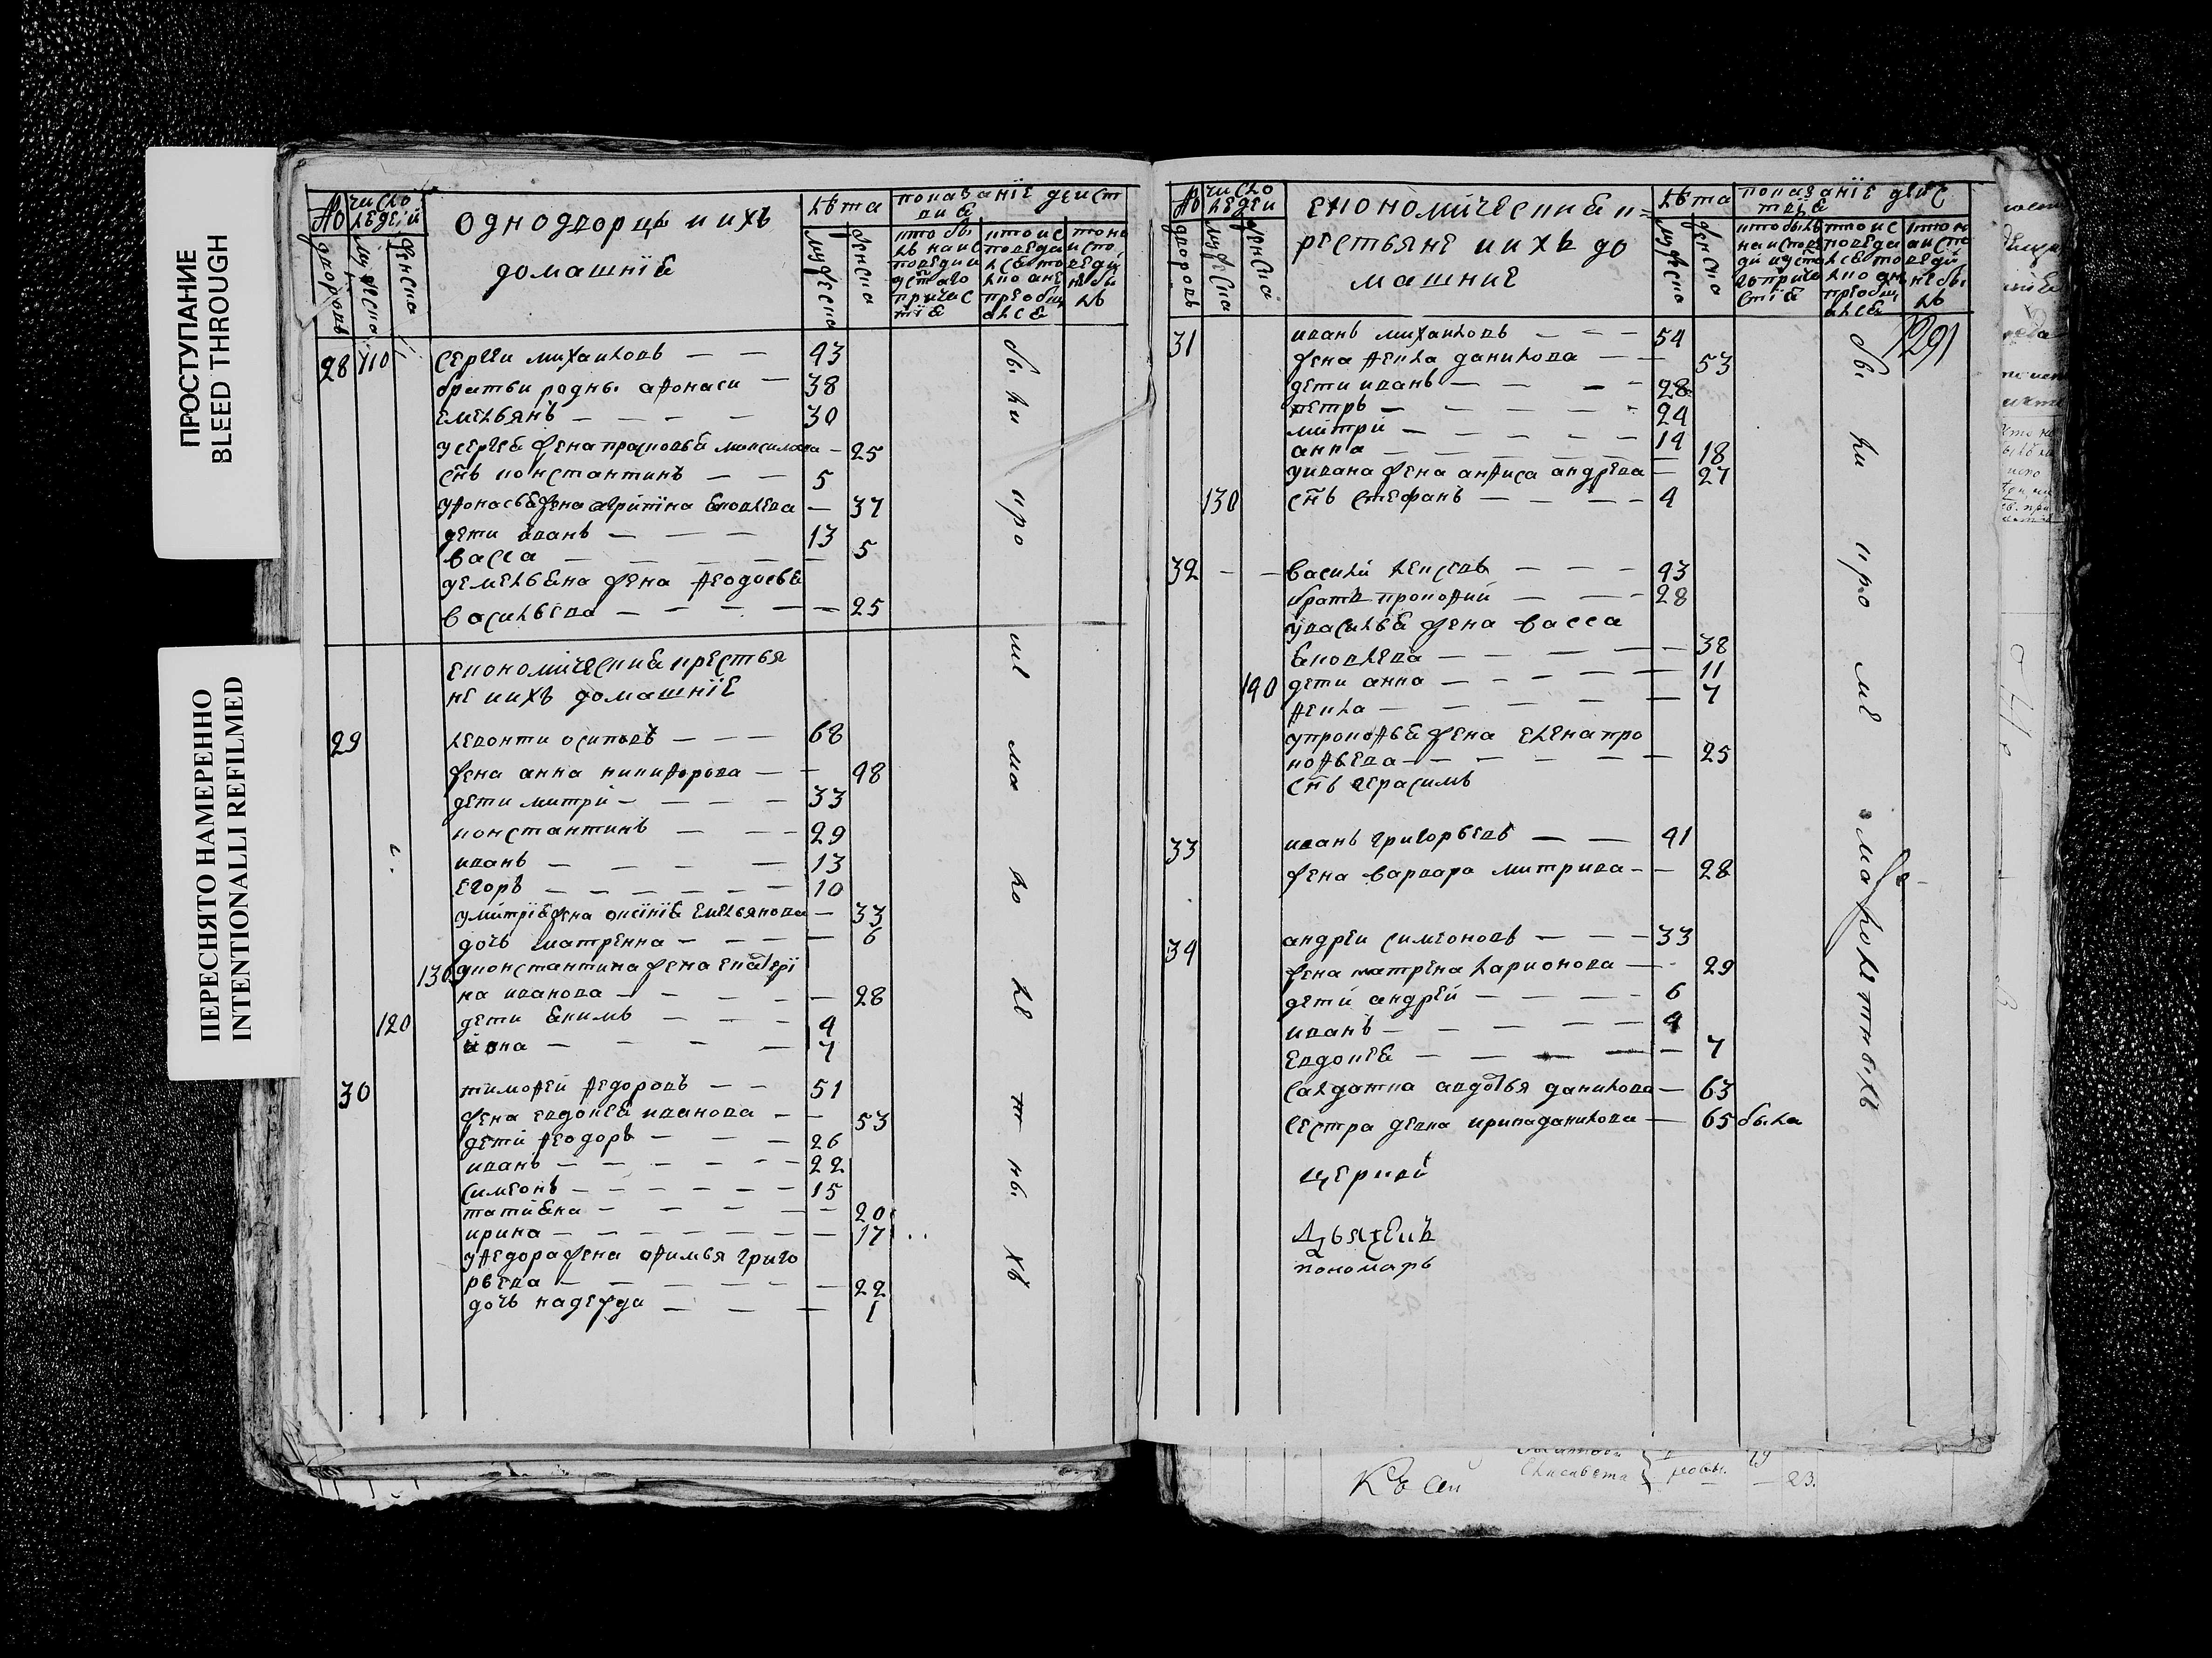 ПРОСТУПАНИЕ
BLEED THROUGH
ПЕРЕСНЯТО НАМЕРЕННО
INTENTIONALLI REFILMED
число людей
дворовъ
мужеска
женска
однодворцы и ихъ
домашнїя
лѣта
мужеска
женска
показанїе действия
28 110 сергеи михаиловъ — — 43
братьи родны афонаси — 38
емельянъ — — — — 30
у сергея жена просковья максимова — 25
снъ константинъ — — 5
у афонасья жена агрипина яковлева — 37
дети иванъ — — — 13
васса — — — — 5
у емельяна жена феодосья
васильева — — — — 25
економическия крестья
не и ихъ домашнїе
29 левонти осиповъ — — — 68
жена анна никифорова — — 48
дети митри — — — — 33
константинъ — — — 29
иванъ — — — — 13
егоръ — — — — — — 10
у митрїя жена оксинїя емельянова — 33
дочь матренна — — — — 6
130 у константина жена екатери
на иванова — — — — — 28
120 дети якимъ — — — 4
анна — — — — 7
30 тимофей федоровъ — — 51
жена евдокея иванова — — 53
дети феодоръ — — — 26
иванъ — — — — — — 22
симеонъ — — — — — — 15
татияна — — — — — — 20
ирина — — — — — — — 17
у федора жена офимья григо
рьева — — — — — — 22
дочь надежда — — — — 1
были
и про
ма
ло
ле
т
ны
хъ
число людей
дворовъ
мужеска
женска
економическия к=
рестьяне и ихъ до
машние
лѣта
мужеска
женска
показанїе дейс
твїя
291
31 иванъ михаиловъ — — — 54
жена фекла данилова — — 53
дети иванъ — — — — 28
петръ — — — — — 24
митри — — — — — 14
анна — — — — — 18
у ивана жена анфиса андрева — 27
130 снъ стефанъ — — — — 4
32 — — василй алексевъ — — — 43
братъ прокофий — — — 28
у василья жена васса
яковлева — — — — — 38
140 дети анна — — — — — 11
фекла — — — — — — 7
у прокофья жена елена про
кофьева — — — — — — 25
снъ герасимъ
33 иванъ григорьевъ — — 41
жена варвара митрива — — 28
34 андреи симеоновъ — — — 33
жена матрена ларионова — — 29
дети андрей — — — — 6
иванъ — — — — — — 4
евдокея — — — — — 7
салдатка авдотья данилова — 63
сестра девка ирина данилова — 65 была
церкви
дьячекъ
пономарь
бы
ли
и про
ма лолетныхъ
23.